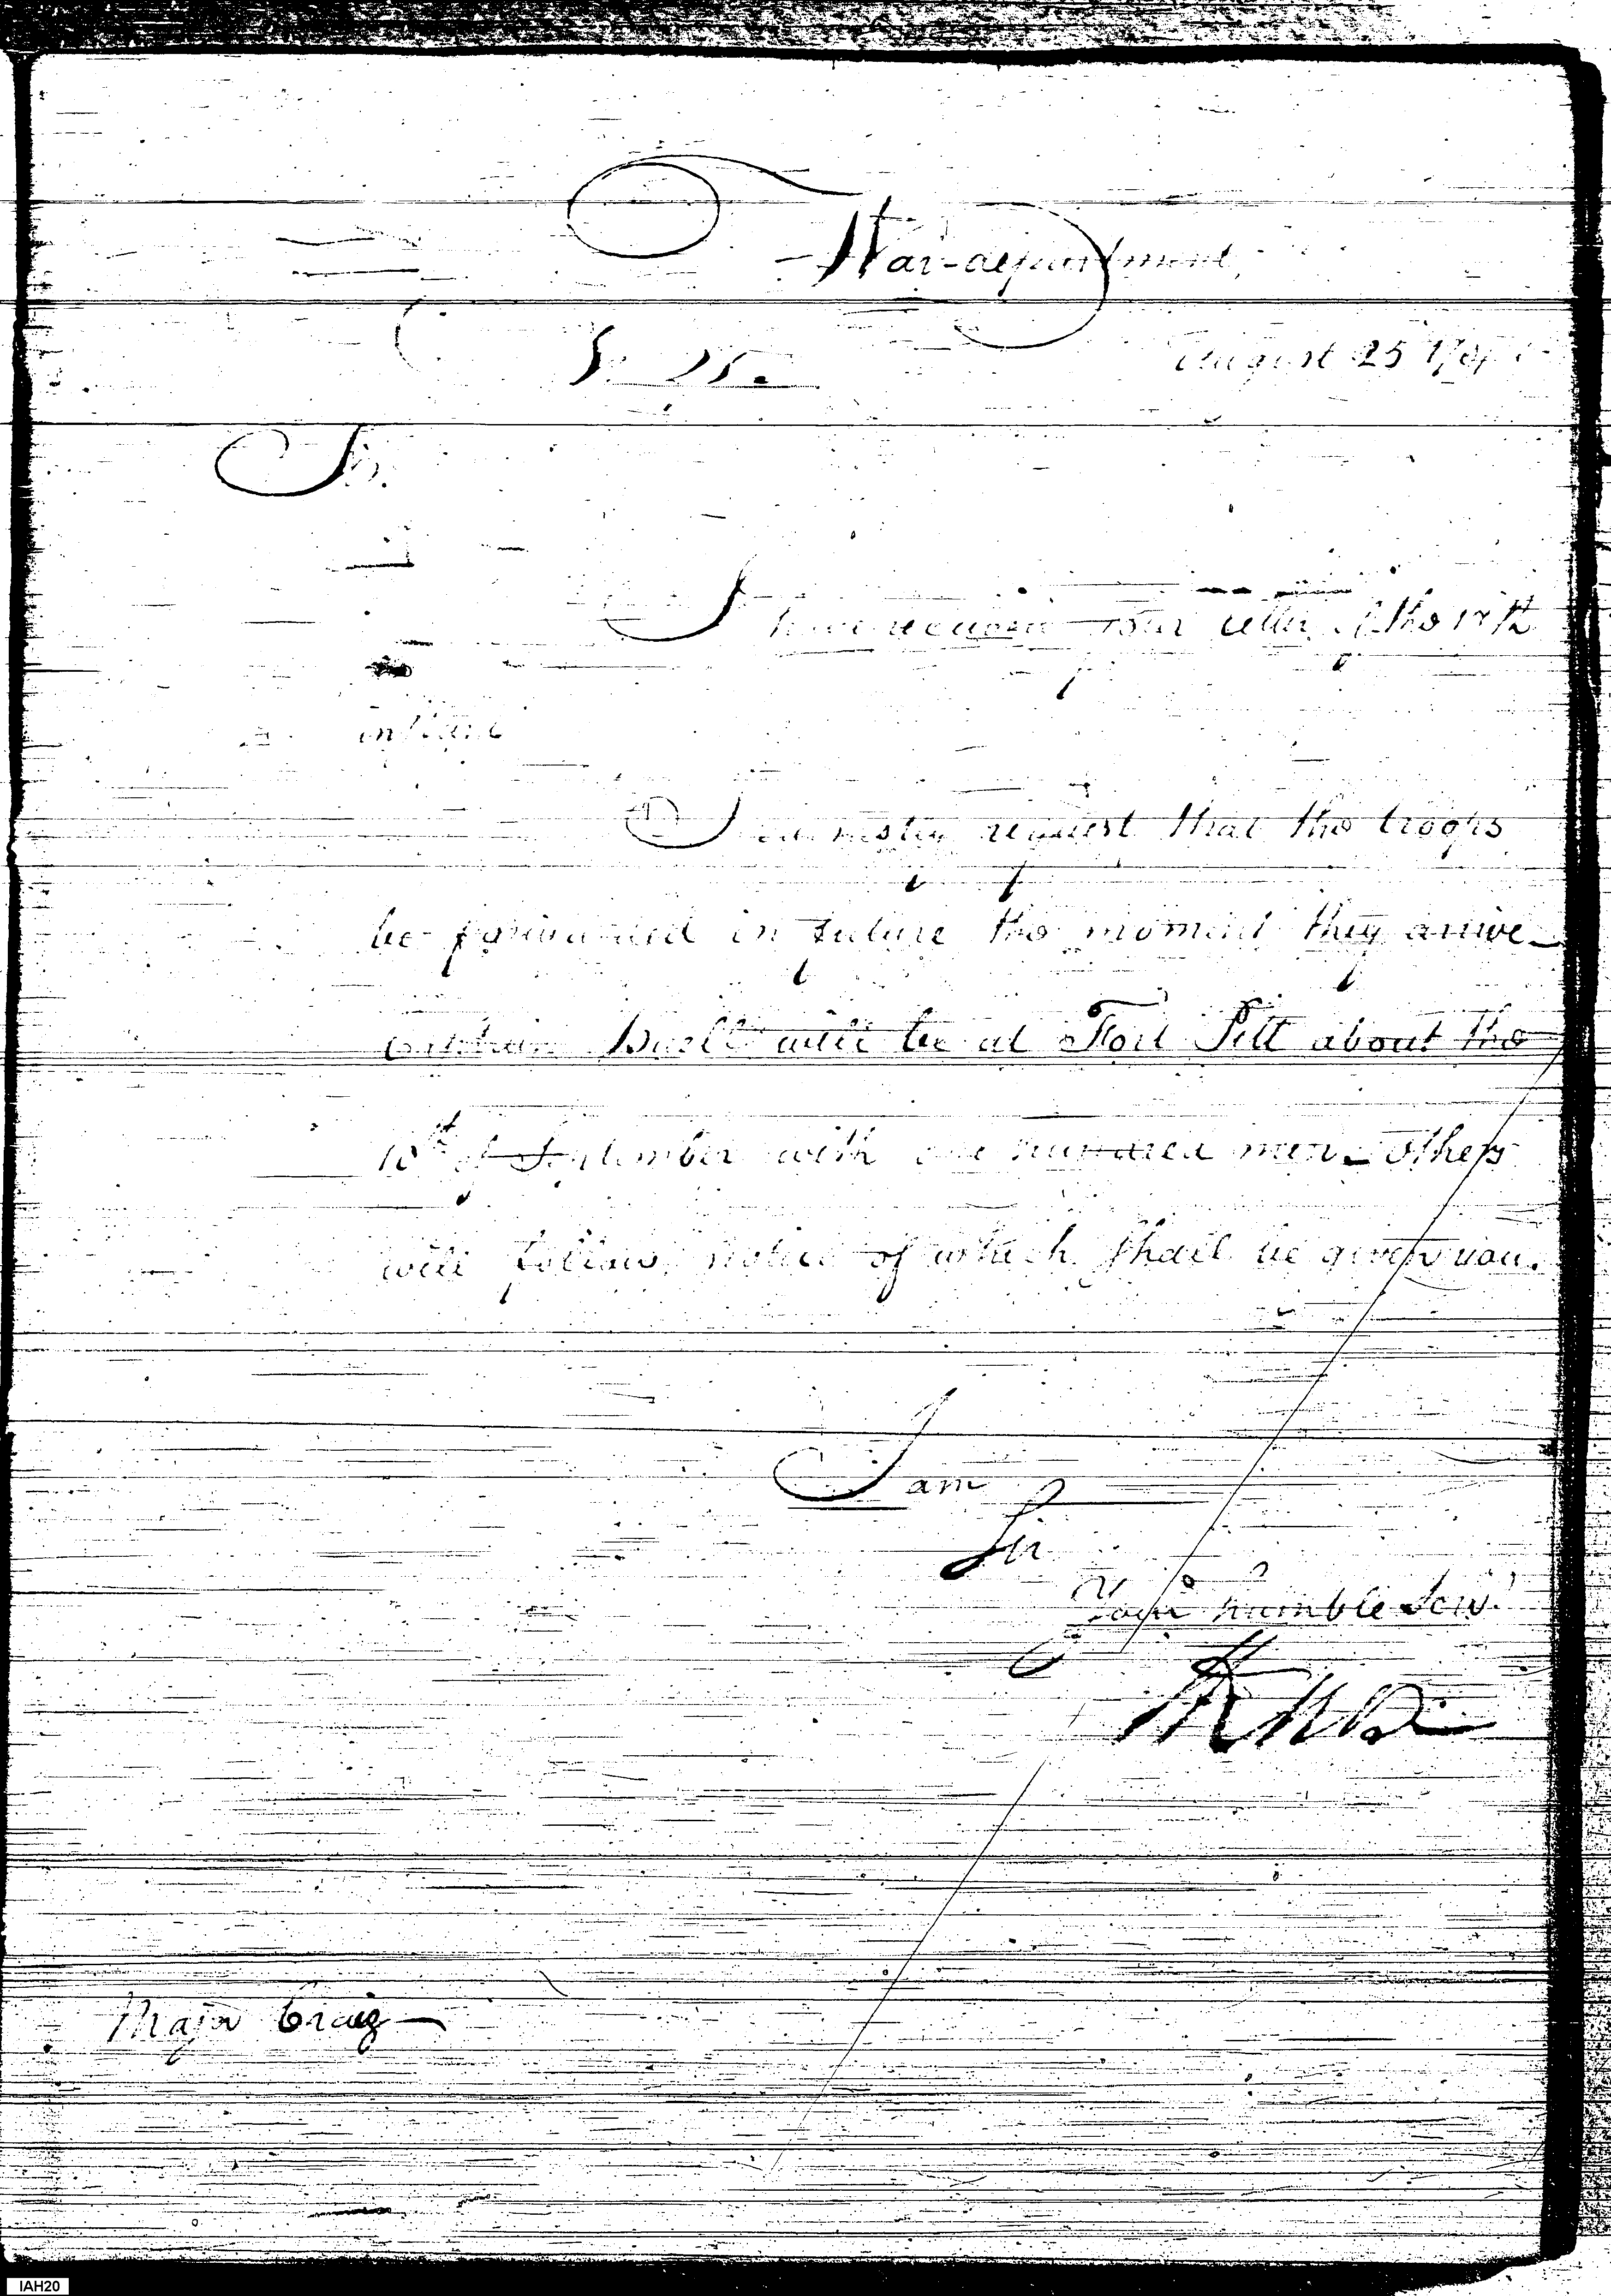 War-department,
August 25 179
Sir.
I have received your letter of the 18th
instant
I earnestly request that the troops
be forwarded in future the moment they arrive_
Captain Buell will be at Fort Pitt about the
10th of September with one hundred men_ others
will follow, notice of which shall be given you.
I am
Sir
Your humble Serv.t
HKnox
Major Craig
IAH20